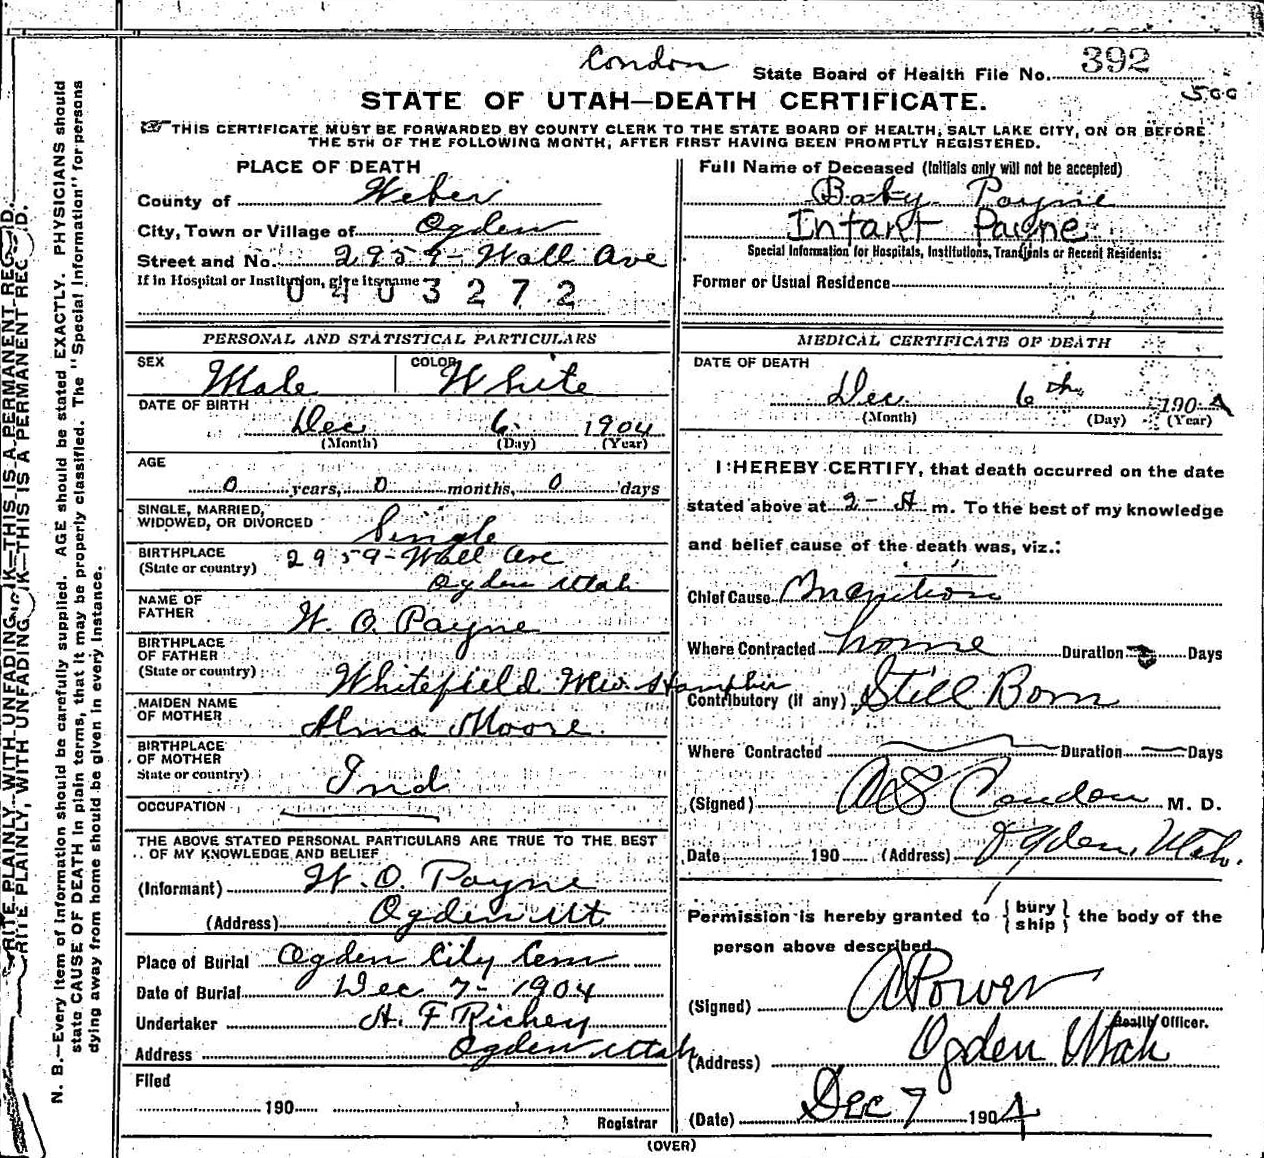 Condon
State Board of Health File No. 392
500
STATE OF UTAH—DEATH CERTIFICATE.
THIS CERTIFICATE MUST BE FORWARDED BY COUNTY CLERK TO THE STATE BOARD OF HEALTH, SALT LAKE CITY, ON OR BEFORE
THE 5TH OF THE FOLLOWING MONTH, AFTER FIRST HAVING BEEN PROMPTLY REGISTERED.
PLACE OF DEATH
County of Weber
City, Town or Village of Ogden
Street and No. 2959- Wall Ave
If in Hospital or Institution, give its name
0403272
Full Name of Deceased (Initials only will not be accepted)
Baby Payne
Infant Payne
Special Information for Hospitals, Institutions, Transients or Recent Residents:
Former or Usual Residence
PERSONAL AND STATISTICAL PARTICULARS
SEX Male COLOR White
DATE OF BIRTH
Dec 6 1904
(Month) (Day) (Year)
AGE
0 years, 0 months, 0 days
SINGLE, MARRIED,
WIDOWED, OR DIVORCED Single
BIRTHPLACE 2959- Wall Ave
(State or country) Ogden Utah
NAME OF
FATHER W. O. Payne
BIRTHPLACE
OF FATHER
(State or country) Whitefield New Hampher
MAIDEN NAME
OF MOTHER Alma Moore.
BIRTHPLACE
OF MOTHER
State or country) Ind
OCCUPATION
THE ABOVE STATED PERSONAL PARTICULARS ARE TRUE TO THE BEST
OF MY KNOWLEDGE AND BELIEF
(Informant) W. O. Payne
(Address) Ogden Ut
Place of Burial Ogden City Cem
Date of Burial Dec 7- 1904
Undertaker A. F Richey
Address Ogden Utah
Filed
190
Registrar
MEDICAL CERTIFICATE OF DEATH
DATE OF DEATH
Dec 6th 1904
(Month) (Day) (Year)
I HEREBY CERTIFY, that death occurred on the date
stated above at 2- A m. To the best of my knowledge
and belief cause of the death was, viz.:
Chief Cause Inanition
Where Contracted home Duration Days
Contributory (if any) Still Born
Where Contracted Duration Days
(Signed) A S Condon M. D.
Date 190 (Address) Ogden, Utah.
Permission is hereby granted to { bury ship } the body of the
person above described.
(Signed) A Power
Health Officer.
(Address) Ogden Utah
(Date) Dec 7 1904
(OVER)
N. B.—Every item of information should be carefully supplied. AGE should be stated EXACTLY. PHYSICIANS should
state CAUSE OF DEATH in plain terms, that it may be properly classified. The "Special Information" for persons
dying away from home should be given in every instance.
RITE PLAINLY, WITH UNFADING INK—THIS IS A PERMANENT RECORD.
RITE PLAINLY, WITH UNFADING INK—THIS IS A PERMANENT RECORD.